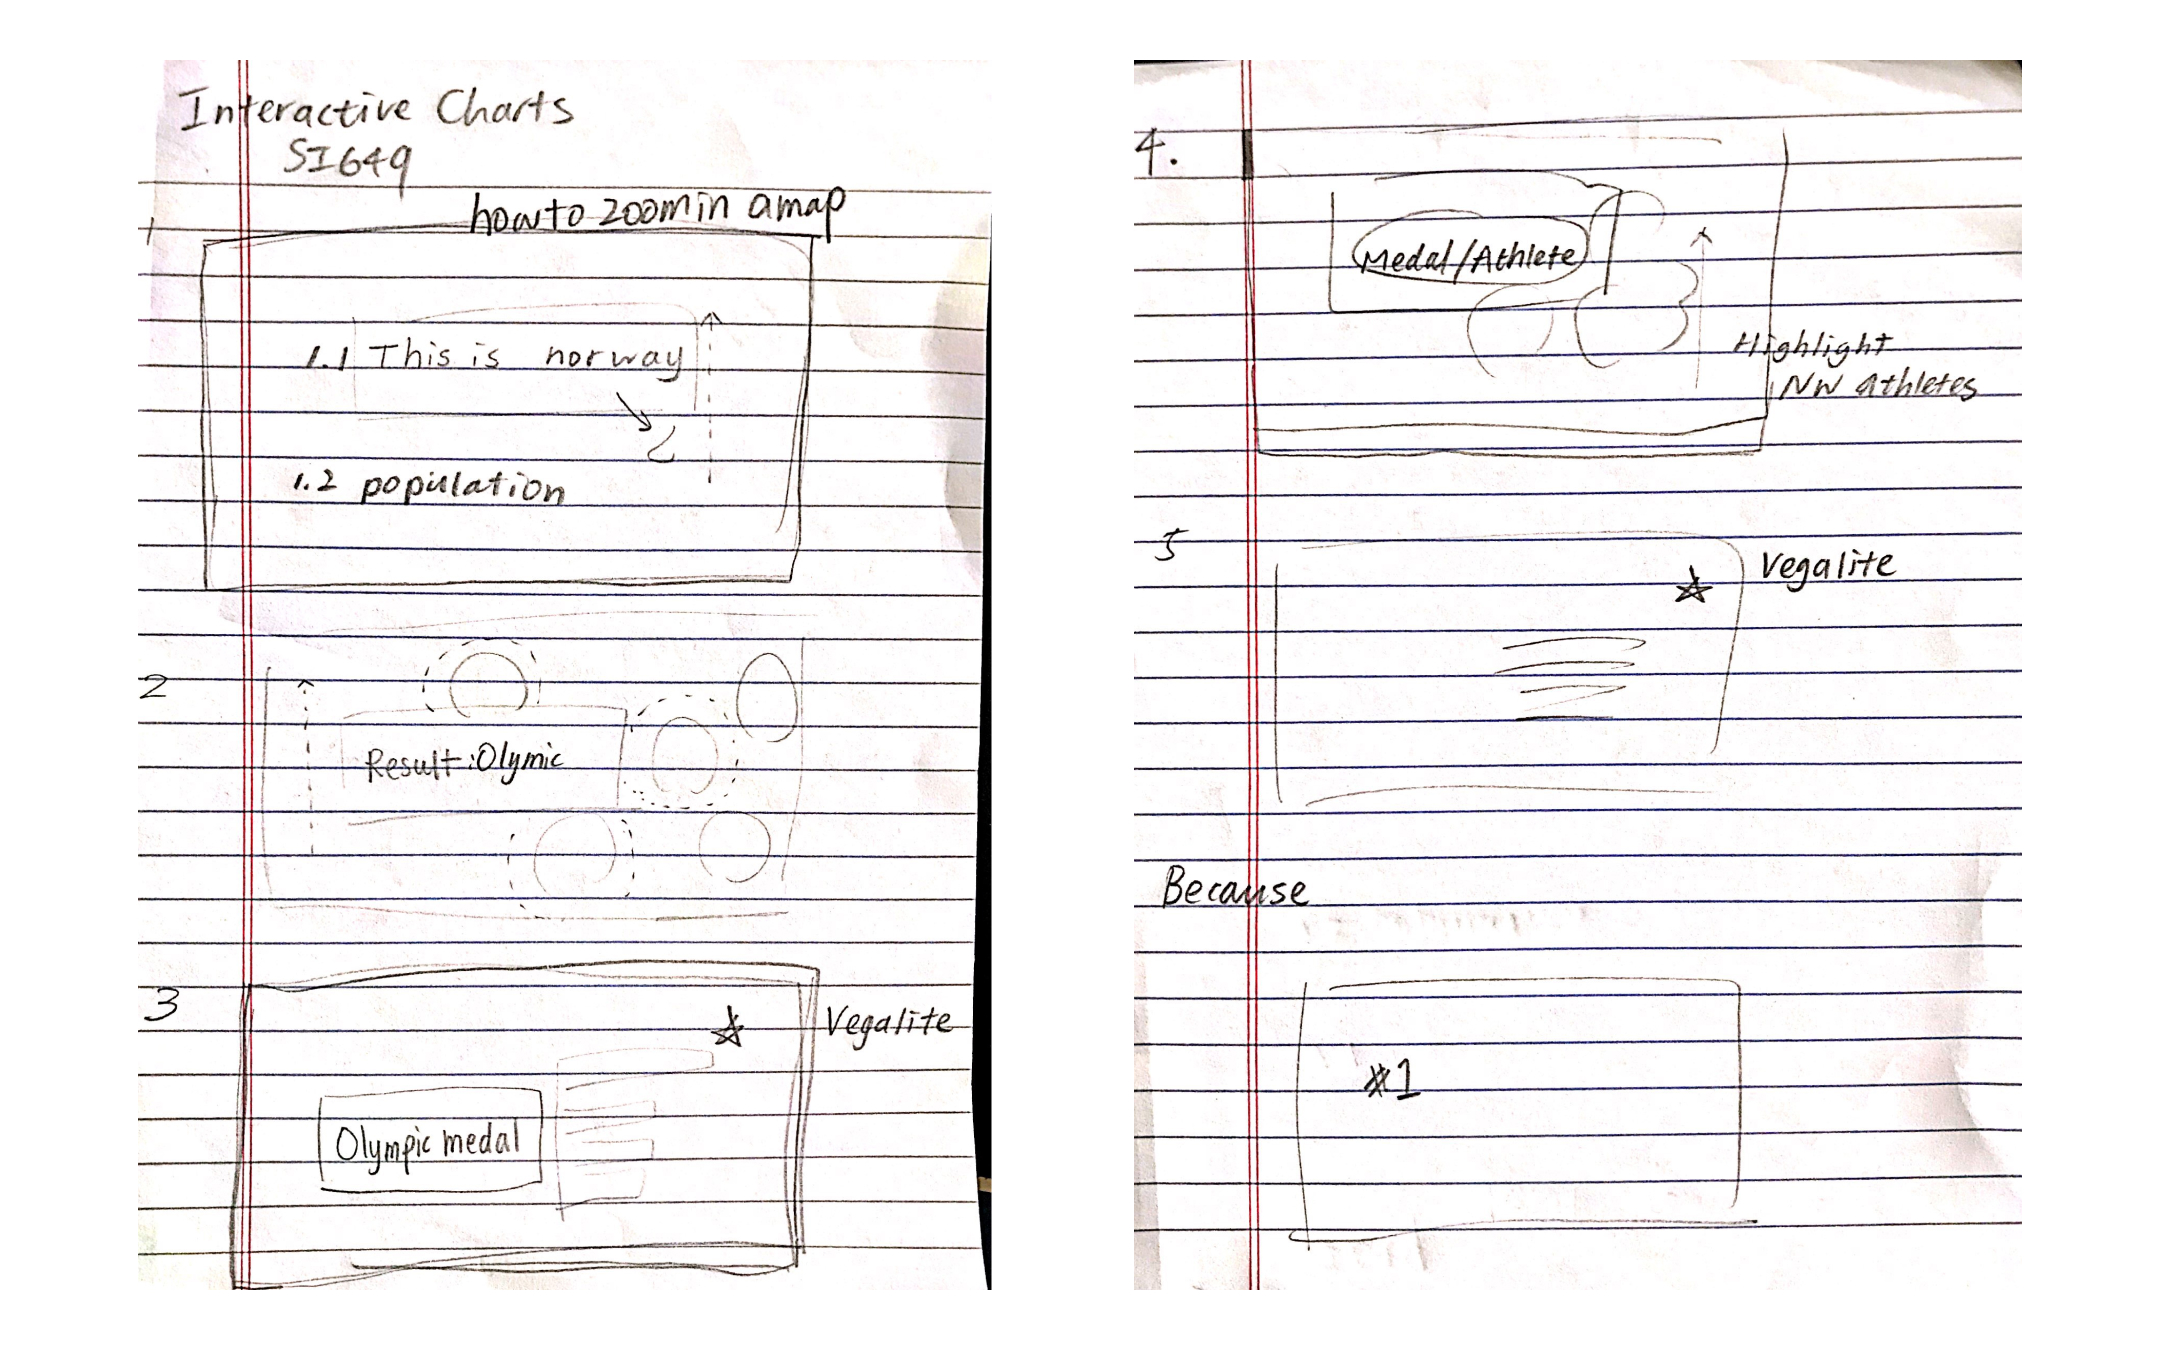 Interactive Charts
SI649
how to zoom in a map
1
1.1 This is norway
1.2 population
2
Result: Olymic
3
Vegalite
Olympic medal
4.
Medal/Athlete
Highlight
NW athletes
5
Vegalite
Because
#1